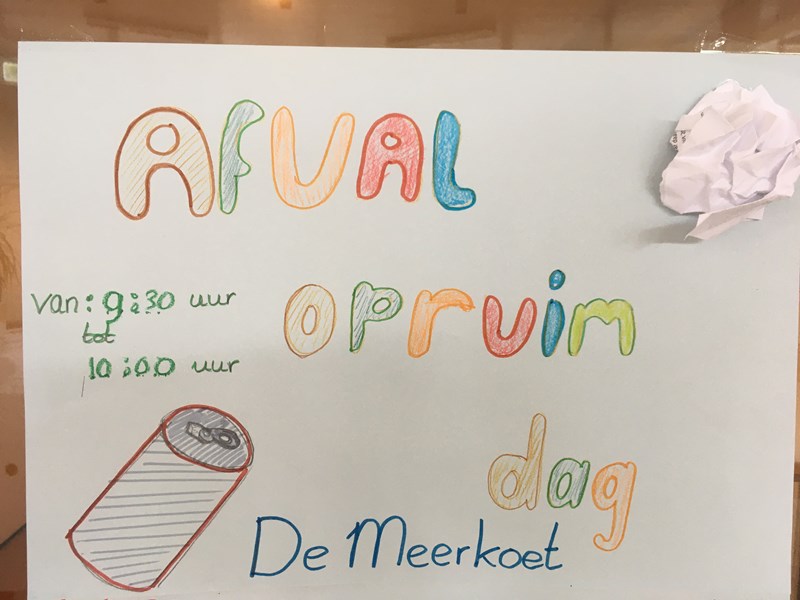 AFVAL
van: 9:30 uur
tot
10:00 uur
opruim
dag
De Meerkoet